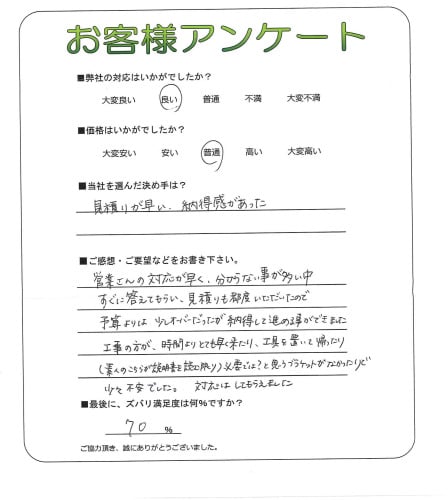 お客様アンケート
■弊社の対応はいかがでしたか？
大変良い 良い 普通 不満 大変不満
■価格はいかがでしたか？
大変安い 安い 普通 高い 大変高い
■当社を選んだ決め手は？
見積りが早い、納得感があった
■ご感想・ご要望などをお書き下さい。
営業さんの対応が早く、分からない事が多い中
すぐに答えてもらい、見積りも都度いただいたので
予算よりは少しオーバーだったが納得して進め事ができました
工事の方が、時間よりとても早く来たり、工具を置いて帰ったり
(素人のこちらが説明書を読む限り)必要では？と思うブラケットがなかったりと
少々不安でした。対応はしてもらえました
■最後に、ズバリ満足度は何％ですか？
70 ％
ご協力頂き、誠にありがとうございました。